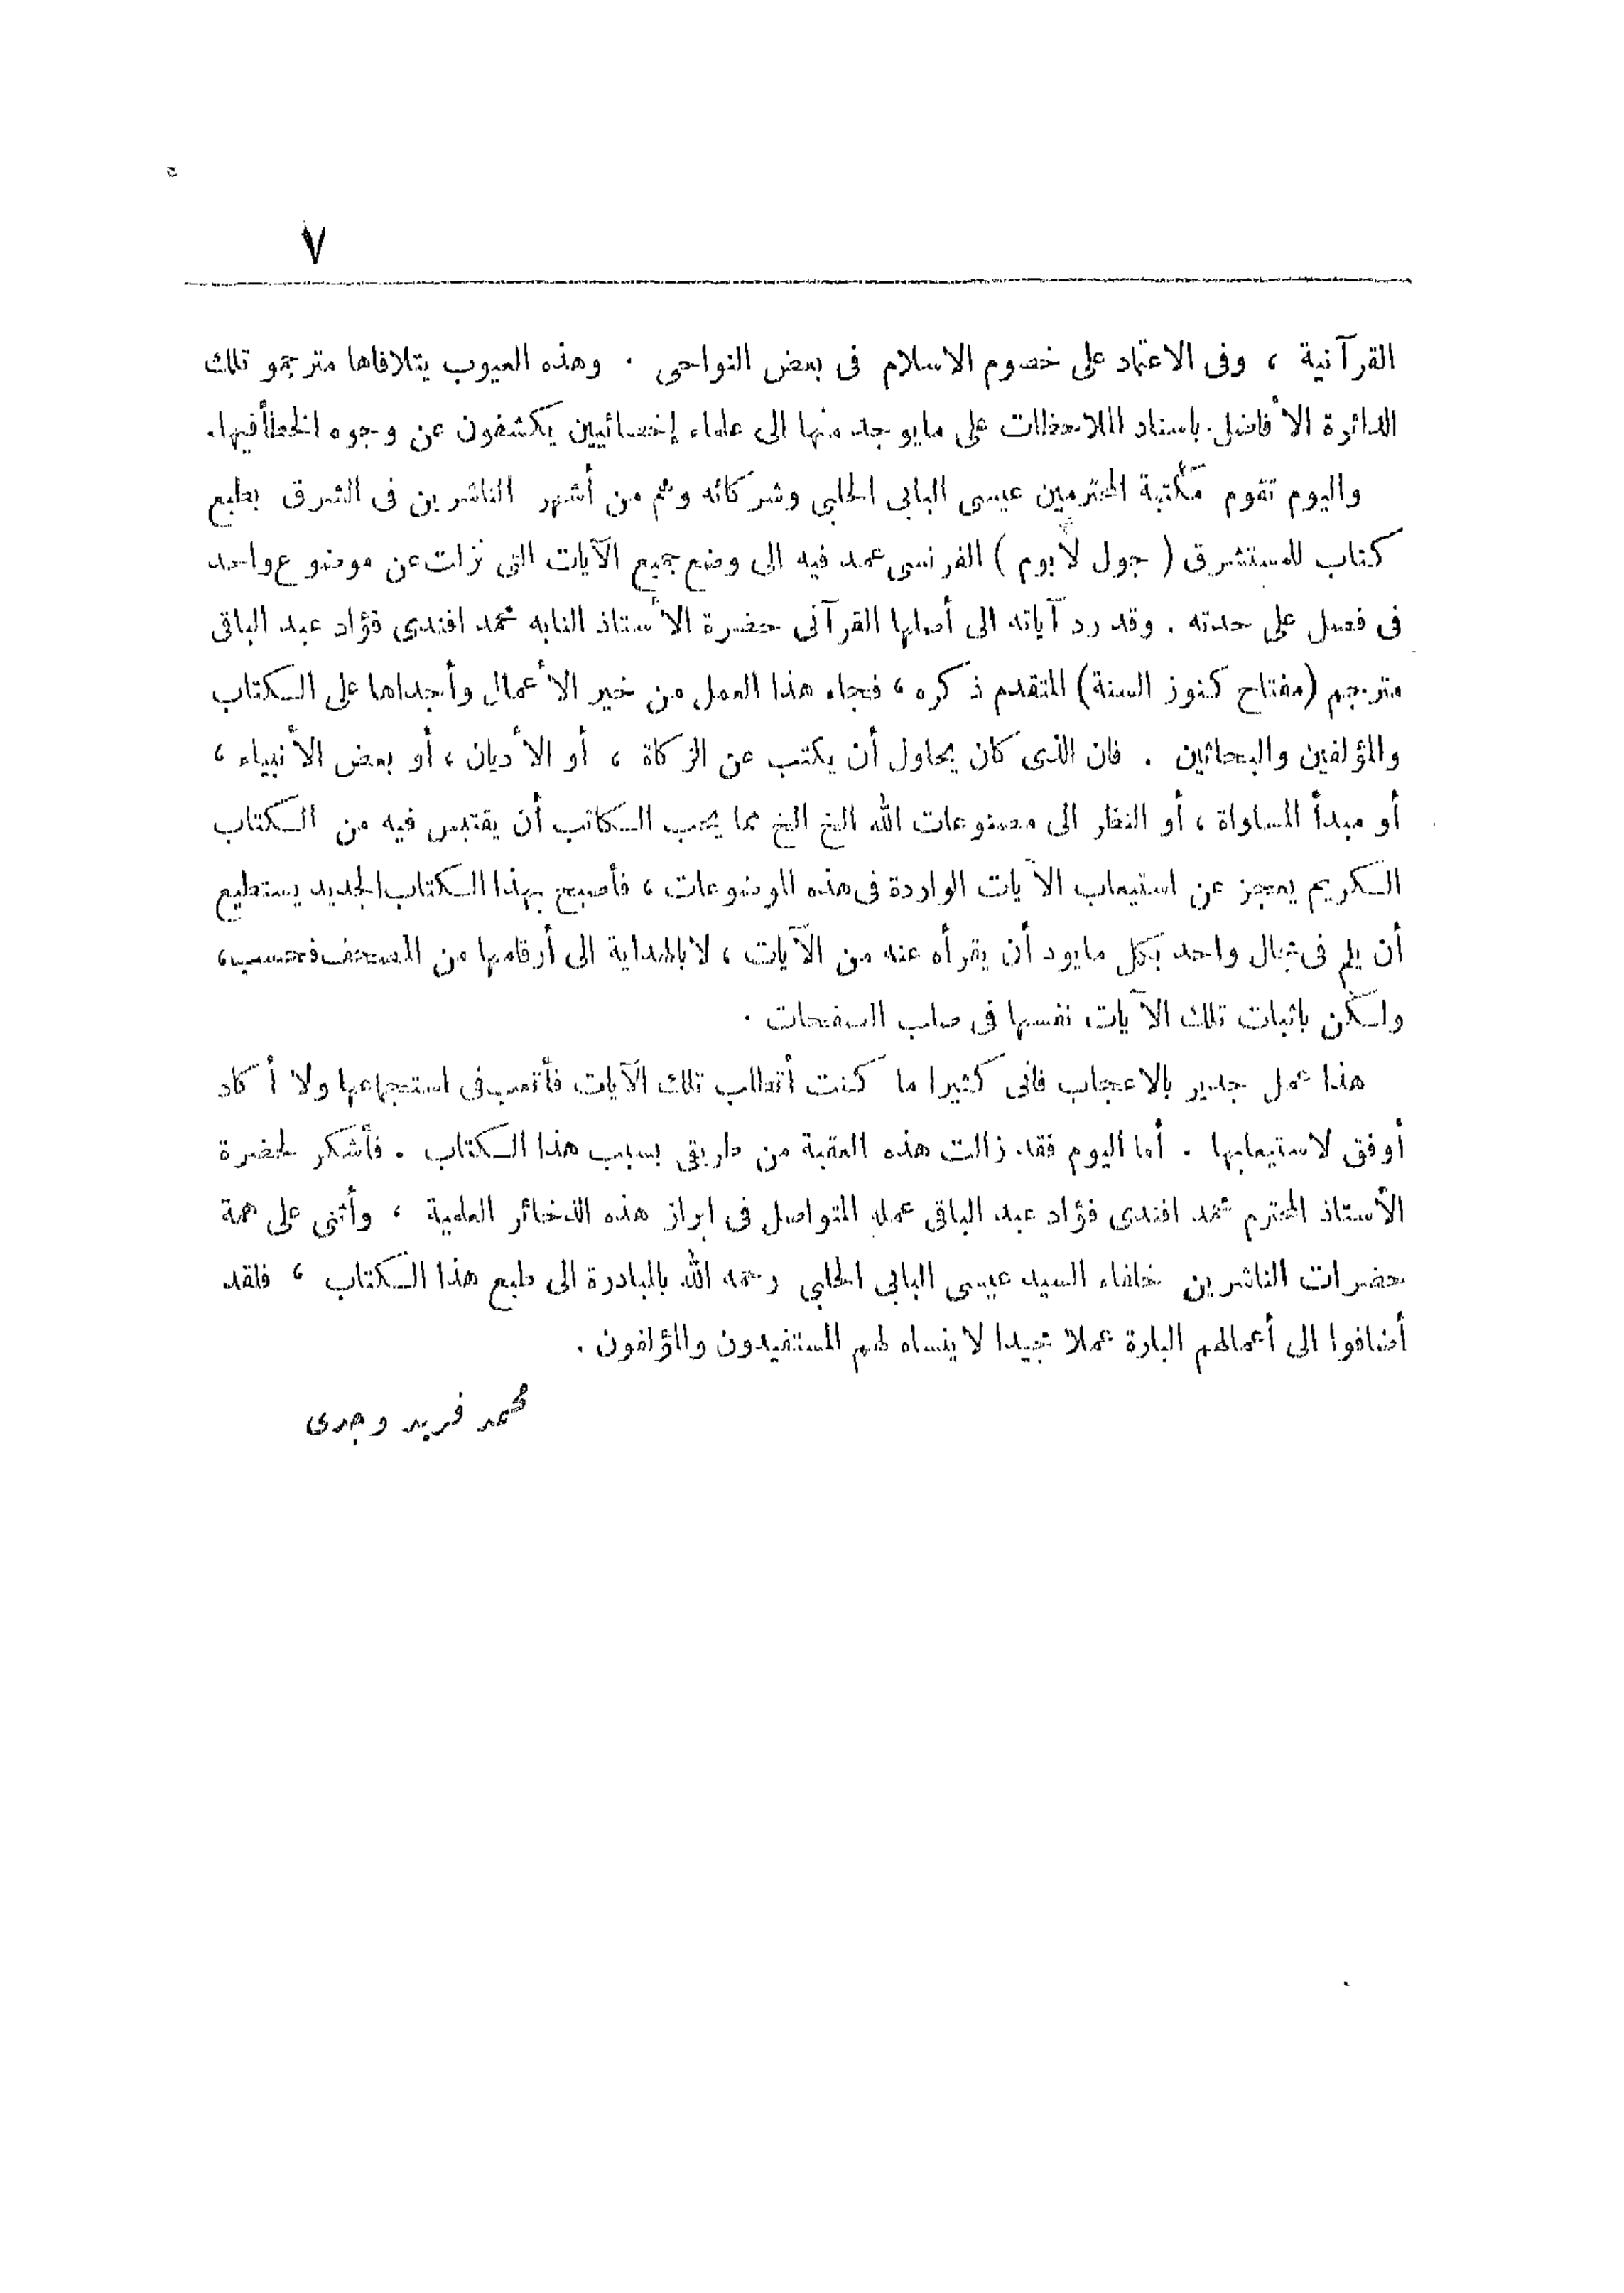 ٧
القرآنية ، وفى الاعتماد على خصوم الاسلام فى بعض النواحى . وهذه العيوب يتلافاها مترجمو تلك
الدائرة الأفاضل باسناد الملاحظات على مايوجد منها الى علماء إخصائيين يكشفون عن وجوه الخطأ فيها .
واليوم تقوم مكتبة المحترمين عيسى البابى الحلبي وشركائه وهم من أشهر الناشرين فى الشرق بطبع
كتاب للمستشرق ( جول لابوم ) الفرنسى عمد فيه الى وضع جميع الآيات التى نزلت عن موضوع واحد
فى فصل على حدته . وقد رد آياته الى أصلها القرآنى حضرة الأستاذ النابه محمد افندى فؤاد عبد الباقى
مترجم (مفتاح كنوز السنة) المتقدم ذكره ، فجاء هذا العمل من خير الأعمال وأجداها على الكتاب
والمؤلفين والبحاثين . فان الذى كان يحاول أن يكتب عن الزكاة ، أو الأديان ، أو بعض الأنبياء ،
أو مبدأ المساواة ، أو النظر الى مصنوعات الله الخ الخ مما يحب الكاتب أن يقتبس فيه من الكتاب
الكريم يعجز عن استيعاب الآيات الواردة فى هذه الموضوعات ، فأصبح بهذا الكتاب الجديد يستطيع
أن يلم فى مجال واحد بكل مايود أن يقرأه عنه من الآيات ، لا بالهداية الى أرقامها من المصحف فحسب ،
ولكن باثبات تلك الآيات نفسها فى صلب الصفحات .
هذا عمل جدير بالاعجاب فانى كثيرا ما كنت أتطلب تلك الآيات فأتعب فى استجماعها ولا أكاد
أوفق لاستيعابها . أما اليوم فقد زالت هذه العقبة من طريقى بسبب هذا الكتاب . فأشكر لحضرة
الأستاذ المحترم محمد افندى فؤاد عبد الباقى عمله المتواصل فى ابراز هذه الذخائر العلمية ، وأثنى على همة
حضرات الناشرين خلفاء السيد عيسى البابى الحلبي رحمه الله بالمبادرة الى طبع هذا الكتاب ، فلقد
أضافوا الى أعمالهم البارة عملا مجيدا لا ينساه لهم المستفيدون والمؤلفون .
محمد فريد وجدى